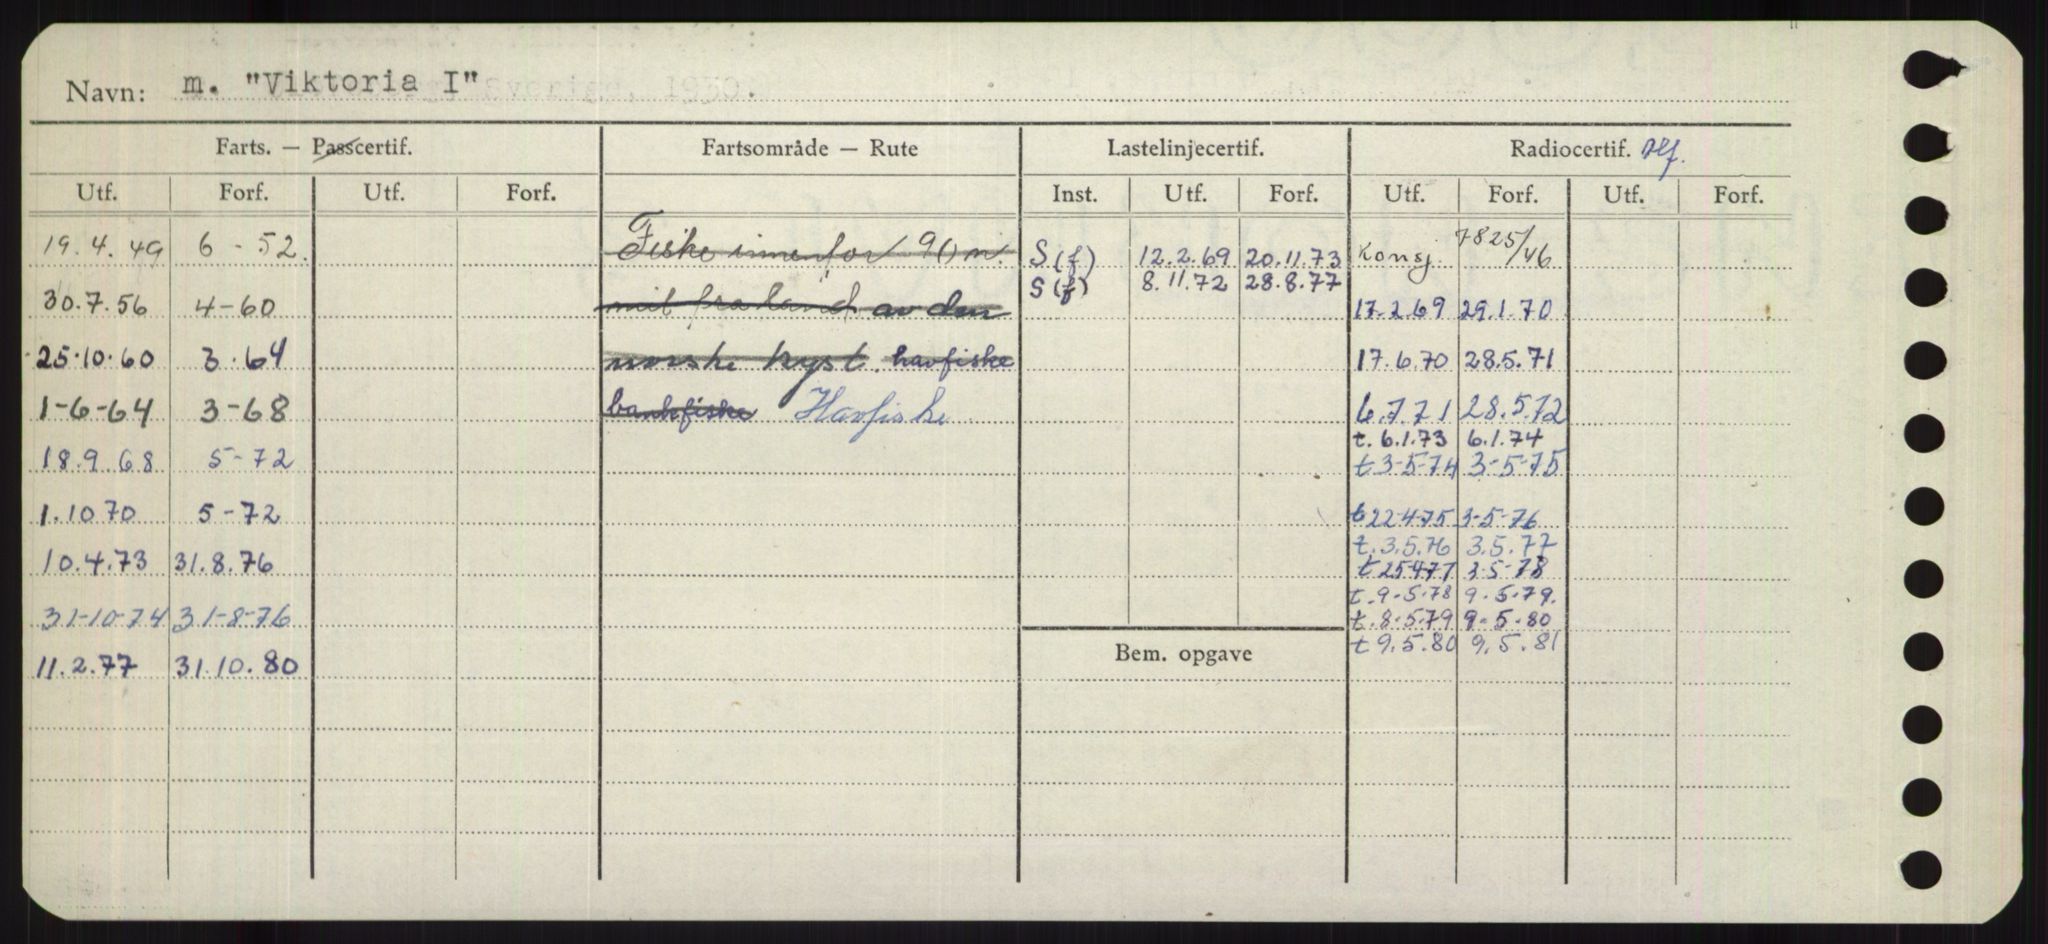 Navn: m. "Viktoria I"
Farts. — Passcertif. Fartsområde — Rute Lastelinjecertif. Radiocertif. Tlf.
Utf. Forf. Utf. Forf. Inst. Utf. Forf. Utf. Forf. Utf. Forf.
19.4.49 6-52. Fiske innenfor 90 m. S(f) 12.2.69 20.11.73 Konsj. 7825/46
S(f) 8.11.72 28.8.77
30.7.56 4-60 mil fra land av den 17.2.69 29.1.70
25.10.60 3.64 norske kyst. havfiske 17.6.70 28.5.71
1-6-64 3-68 bankfiske Havfiske 6.7.71 28.5.72
t. 6.1.73 6.1.74
18.9.68 5-72 t 3-5-74 3-5-75
1.10 70 5-72 t 22-4-75 3-5-76
t. 3.5.76 3.5.77
10.4.73 31.8.76 t 25477 3-5-78
t. 9-5-78 9.5-79.
31-10-74 31-8-76 t. 8-5-79 9-5-80
t 9.5.80 9.5.81
11.2.77 31.10.80 Bem. opgave